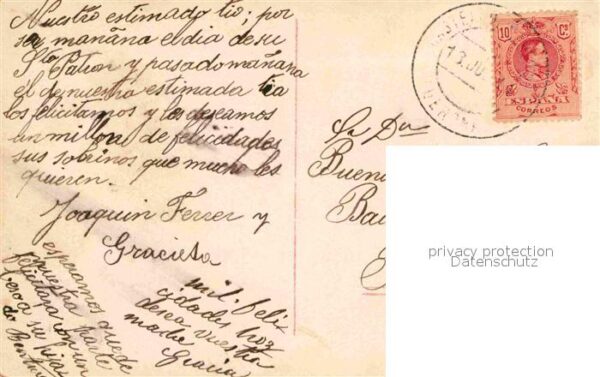 Nuestro estimado tio; por
ser mañana el dia de su
Sto Patron y pasado mañana
el de nuestra estimada tia
los felicitamos y les deseamos
un millon de felicidades
sus sobrinos que mucho les
quieren.
Joaquin Ferrer y
Gracieta
mil feli
cidades hoz
desea vuestra
madre
Gracia
esperamos quede
nuestra parte
felicitaza con un
beso a su hija
de
10 Cs
CORREOS
Sa Da
Buena
Ba
privacy protection
Datenschutz